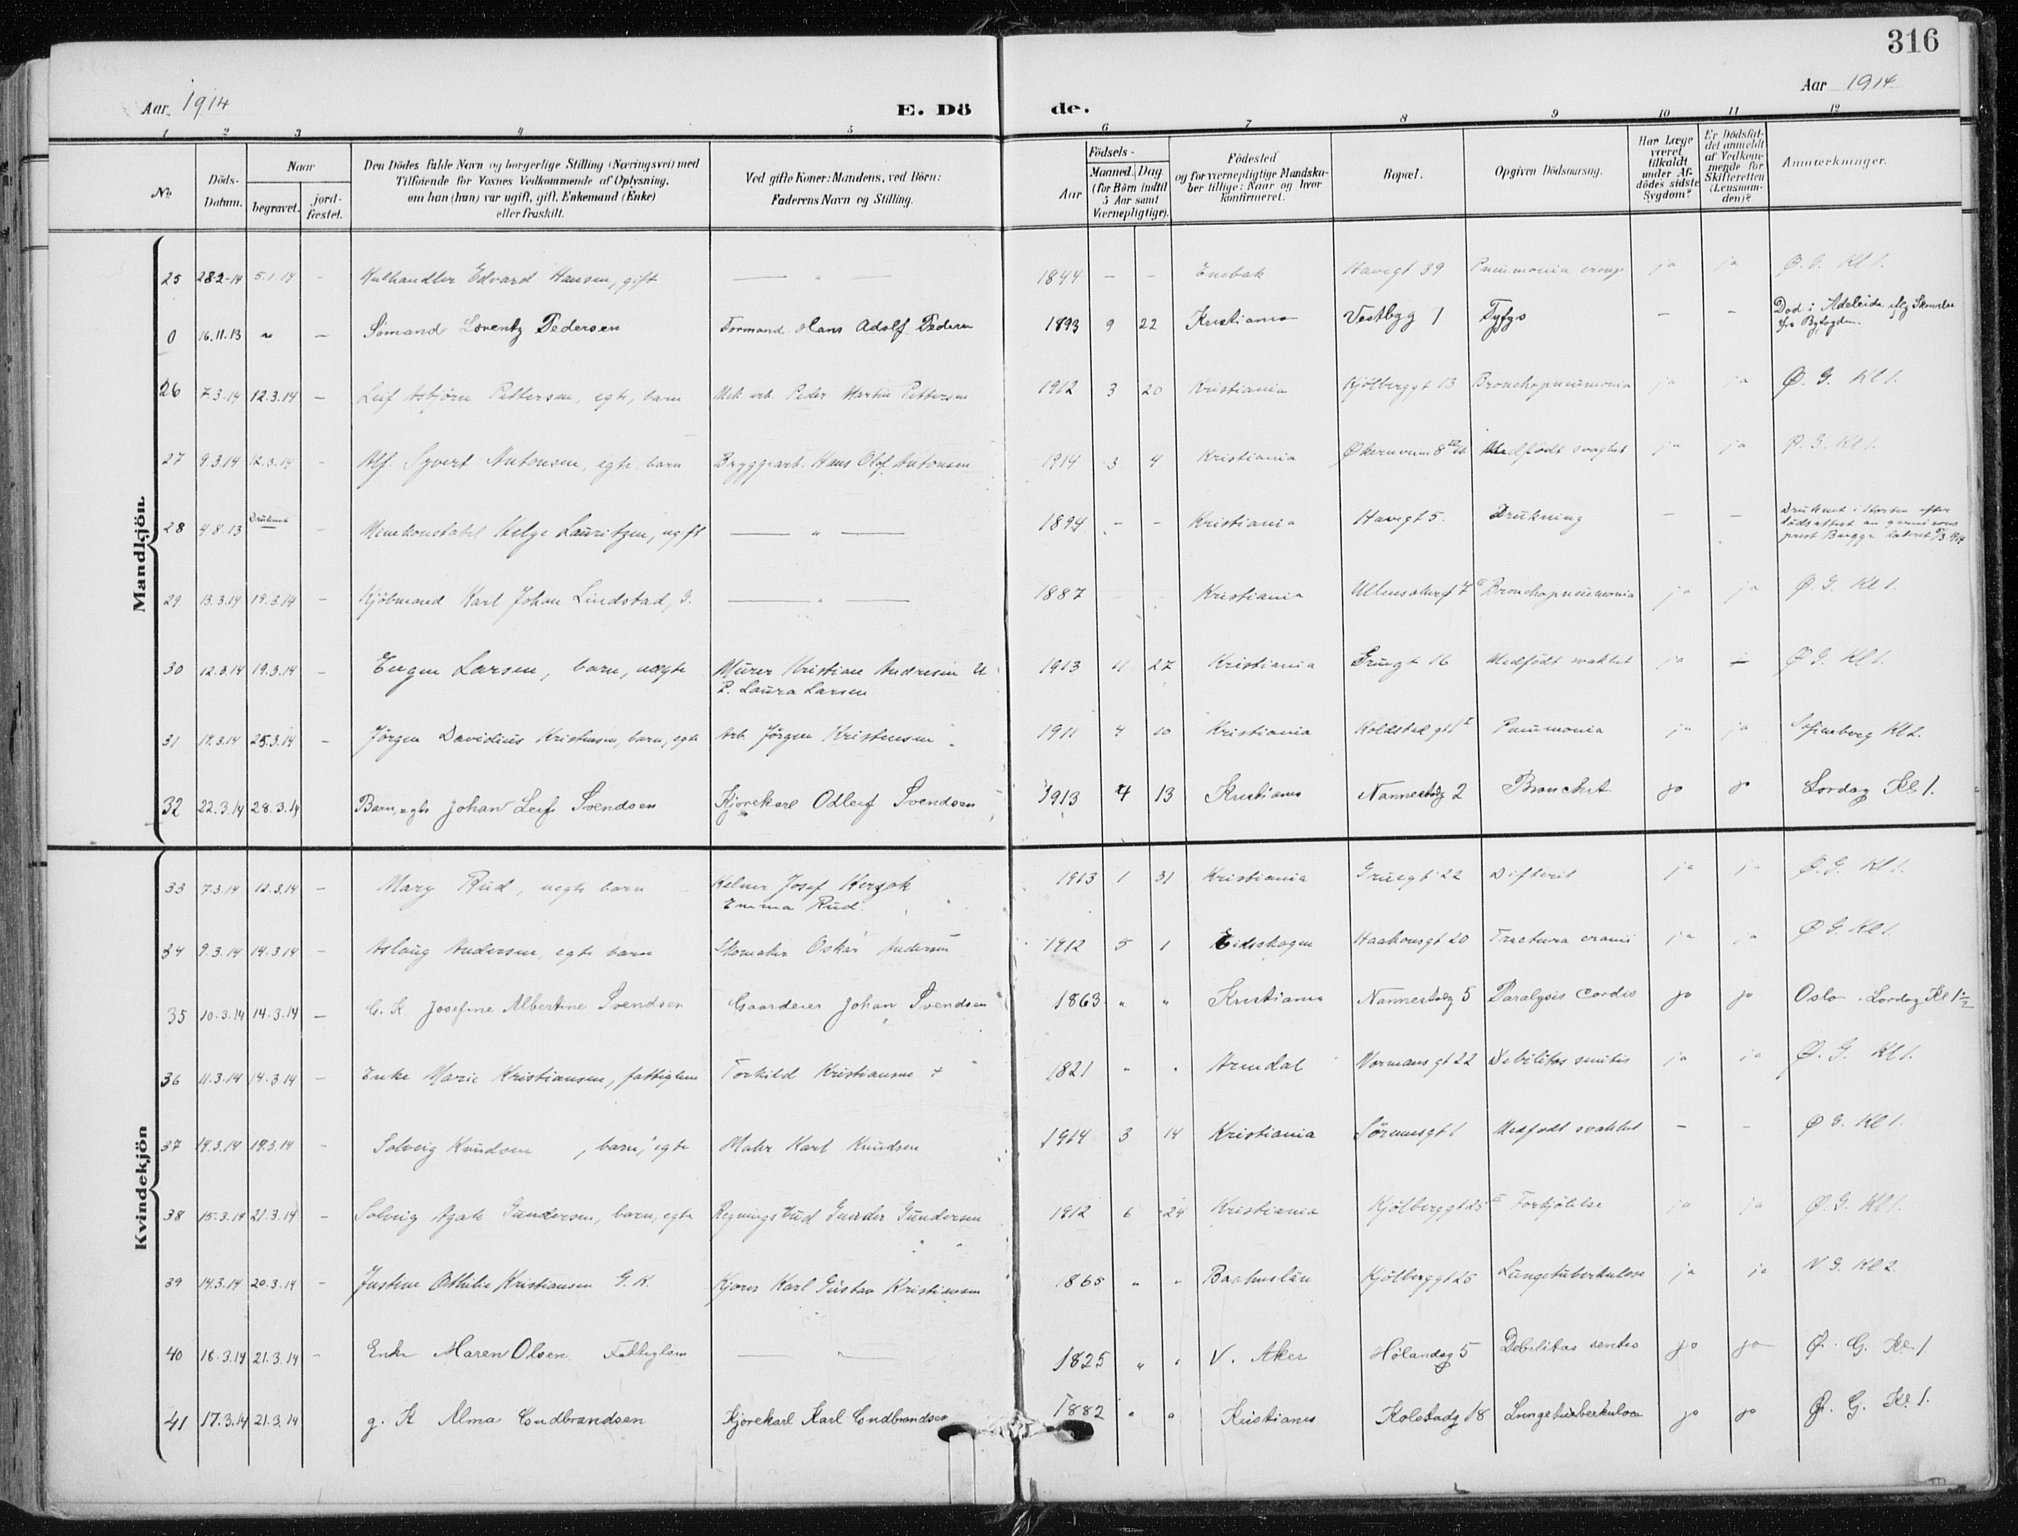 316
Aar 1914
E. Dö
de.
Aar 1914
1 2 3 4 5 6 7 8 9 10 11 12
No
Döds-Datum.
Naar
begravet.
jord-fæstet.
Den Dödes fulde Navn og borgerlige Stilling (Næringsvei) med
Tilföiende for Voxnes Vedkommende af Oplysning,
om han (hun) var ugift, gift, Enkemand (Enke)
eller fraskilt.
Ved gifte Koner: Mandens, ved Börn:
Faderens Navn og Stilling.
Födsels-
Aar
Maaned. Dag.
(for Börn indtil
5 Aar samt
Værnepligtige).
Födested
og for værnepligtige Mandska-
ber tillige: Naar og hvor
konfirmeret.
Bopæl.
Opgiven Dödsaarsag.
Har Læge
været
tilkaldt
under Af-
dödes sidste
Sygdom?
Er Dödsfal-
det anmeldt
af Vedkom-
mende for
Skifteretten
(Lensman-
den)?
Anmerkninger.
Mandkjön.
25 28-2-14 5.1.14 – Kulhandler Edvard Hansen, gift — „ — 1844 – – Enebak Havegt 39 Pneumonia croup ja ja Ø.G. Kl 1.
0 16.11.13 „ – Sömand Lorentz Pedersen Formand Hans Adolf Pedersen 1893 9 22 Kristiania Vestbyg 1 Tyfus – – Død i Adeleide
fra Byfogden.
26 7.3.14 12.3.14 – Leif Asbjörn Pettersen, egte, barn Mek. arb. Peder Martin Pettersen 1912 3 20 Kristiania Kjölberggt 13 Bronchopneumonia ja ja Ø. G. Kl 1.
27 9.3.14 12.3.14 – Alf Syvert Antonsen, egte barn Bryggearb. Hans Olof Antonsen 1914 3 4 Kristiania Økernveien 8 Medfödt svaghet ja ja Ø. G. Kl 1.
28 4.8.13 Druknet – Minekonstabel Helge Lauritzen, ugift — „ — 1894 – – Kristiania Havegt 5. Drukning – – Druknet i Horten efter
dödsattest av garnisons
prest Bugge
29 13.3.14 19.3.14 – Kjöbmand Karl Johan Lindstad, G. — „ — 1887 – – Kristiania Ullensakergt 7 Bronchopneumonia ja ja Ø. G. Kl 1.
30 12.3.14 19.3.14 – Eugen Larsen, barn, uegte Murer Kristian Andresen U
P. Laura Larsen 1913 11 27 Kristiania Gruegt 16 Medfödt svakhet ja – Ø G. Kl 1.
31 18.3.14 25.3.14 – Jörgen Davidius Kristensen, barn, egte Arb. Jörgen Kristensen 1911 4 10 Kristiania Koldstad gt 1 Pneumonia ja ja Sofienberg Kl 2.
32 22.3.14 28.3.14 Barn, egte Johan Leif Svendsen Kjørekarl Odleif Svendsen 1913 4 13 Kristiania Nannestadg 2 Bronchit ja ja Lørdag Kl 1.
Kvindekjön
33 7.3.14 12.3.14 – Mary Rud, uegte barn Kelner Josef Herzok
Emma Rud. 1913 1 31 Kristiania Gruegt 22 Difterit ja ja Ø. G. Kl 1.
34 9.3.14 14.3.14 – Aslaug Andersen, egte barn Skomaker Oskar Andersen 1912 5 1 Eidsskogen Haakonsgt 20 Fractura cranii ja ja Ø G. Kl 1.
35 10.3.14 14.3.14 – G. K. Josefine Albertine Svendsen Gaardeier Johan Svendsen 1863 „ „ Kristiania Nannestadg 5 Paralysis Cordis ja ja Oslo. Lørdag Kl 1½
36 11.3.14 14.3.14 – Enke Marie Kristiansen, fattiglem Torkild Kristiansen + 1821 „ „ Arendal Normans gt 22 Debilitas senilis ja ja Ø. G. Kl 1.
37 14.3.14 19.3.14 – Solveig Knudsen, barn, egte Maler Karl Knudsen 1914 3 14 Kristiania Sörumsgt 1 Medfödt svakhet – – Ø G. Kl 1.
38 15.3.14 21.3.14 – Solveig Agate Gundersen, barn, egte Regningsbud Gunder Gundersen 1912 6 24 Kristiania Kjölberggt 25 Forkjölelse ja ja Ø. G. Kl 1.
39 14.3.14 20.3.14 – Justine Othilie Kristiansen G. K. Kjører Karl Gustav Kristiansen 1865 „ „ Baahuslän Kjölberggt 25 Lungetuberkulose ja ja N G. Kl 2.
40 18.3.14 21.3.14 – Enke Maren Olsen Fattiglem — „ — 1825 „ „ V. Aker Hølandsg 5 Debilitas seniles ja ja Ø. G. Kl 1
41 17.3.14 21.3.14 g. K Alma Gudbrandsen Kjørekarl Karl Gudbrandsen 1882 „ „ Kristiania Kolstadg 18 Lungetuberkulose ja ja Ø. G. Kl 1.